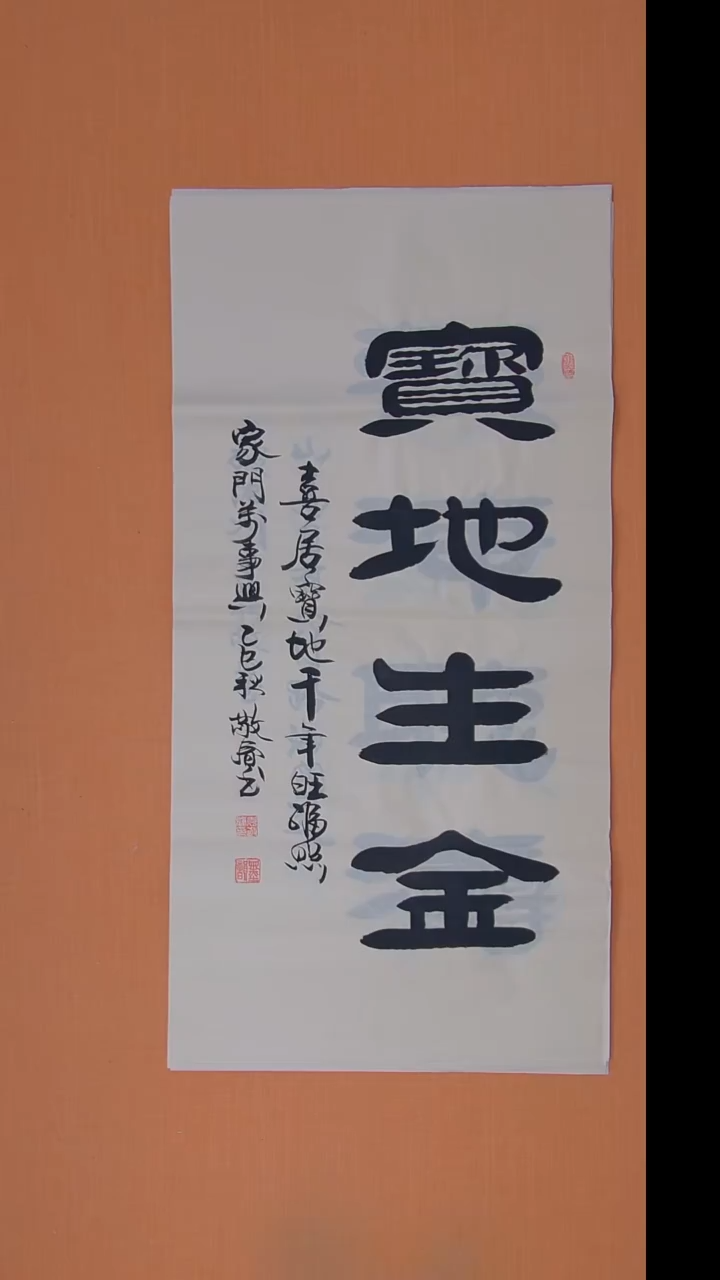 寶地生金
喜居寶地千年旺福照
家門萬事興乙巳秋敬